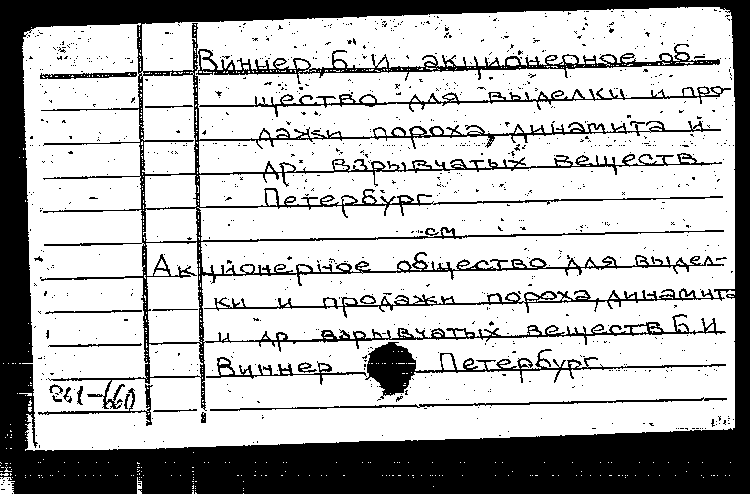 Виннер, Б. И., акционерное об-
щество для выделки и про-
дажи пороха, динамита и
др. взрывчатых веществ.
Петербург.
см.
Акционерное общество для выдел-
ки и продажи пороха, динамита
и др. взрывчатых веществ Б. И.
Виннер Петербург.
261-660